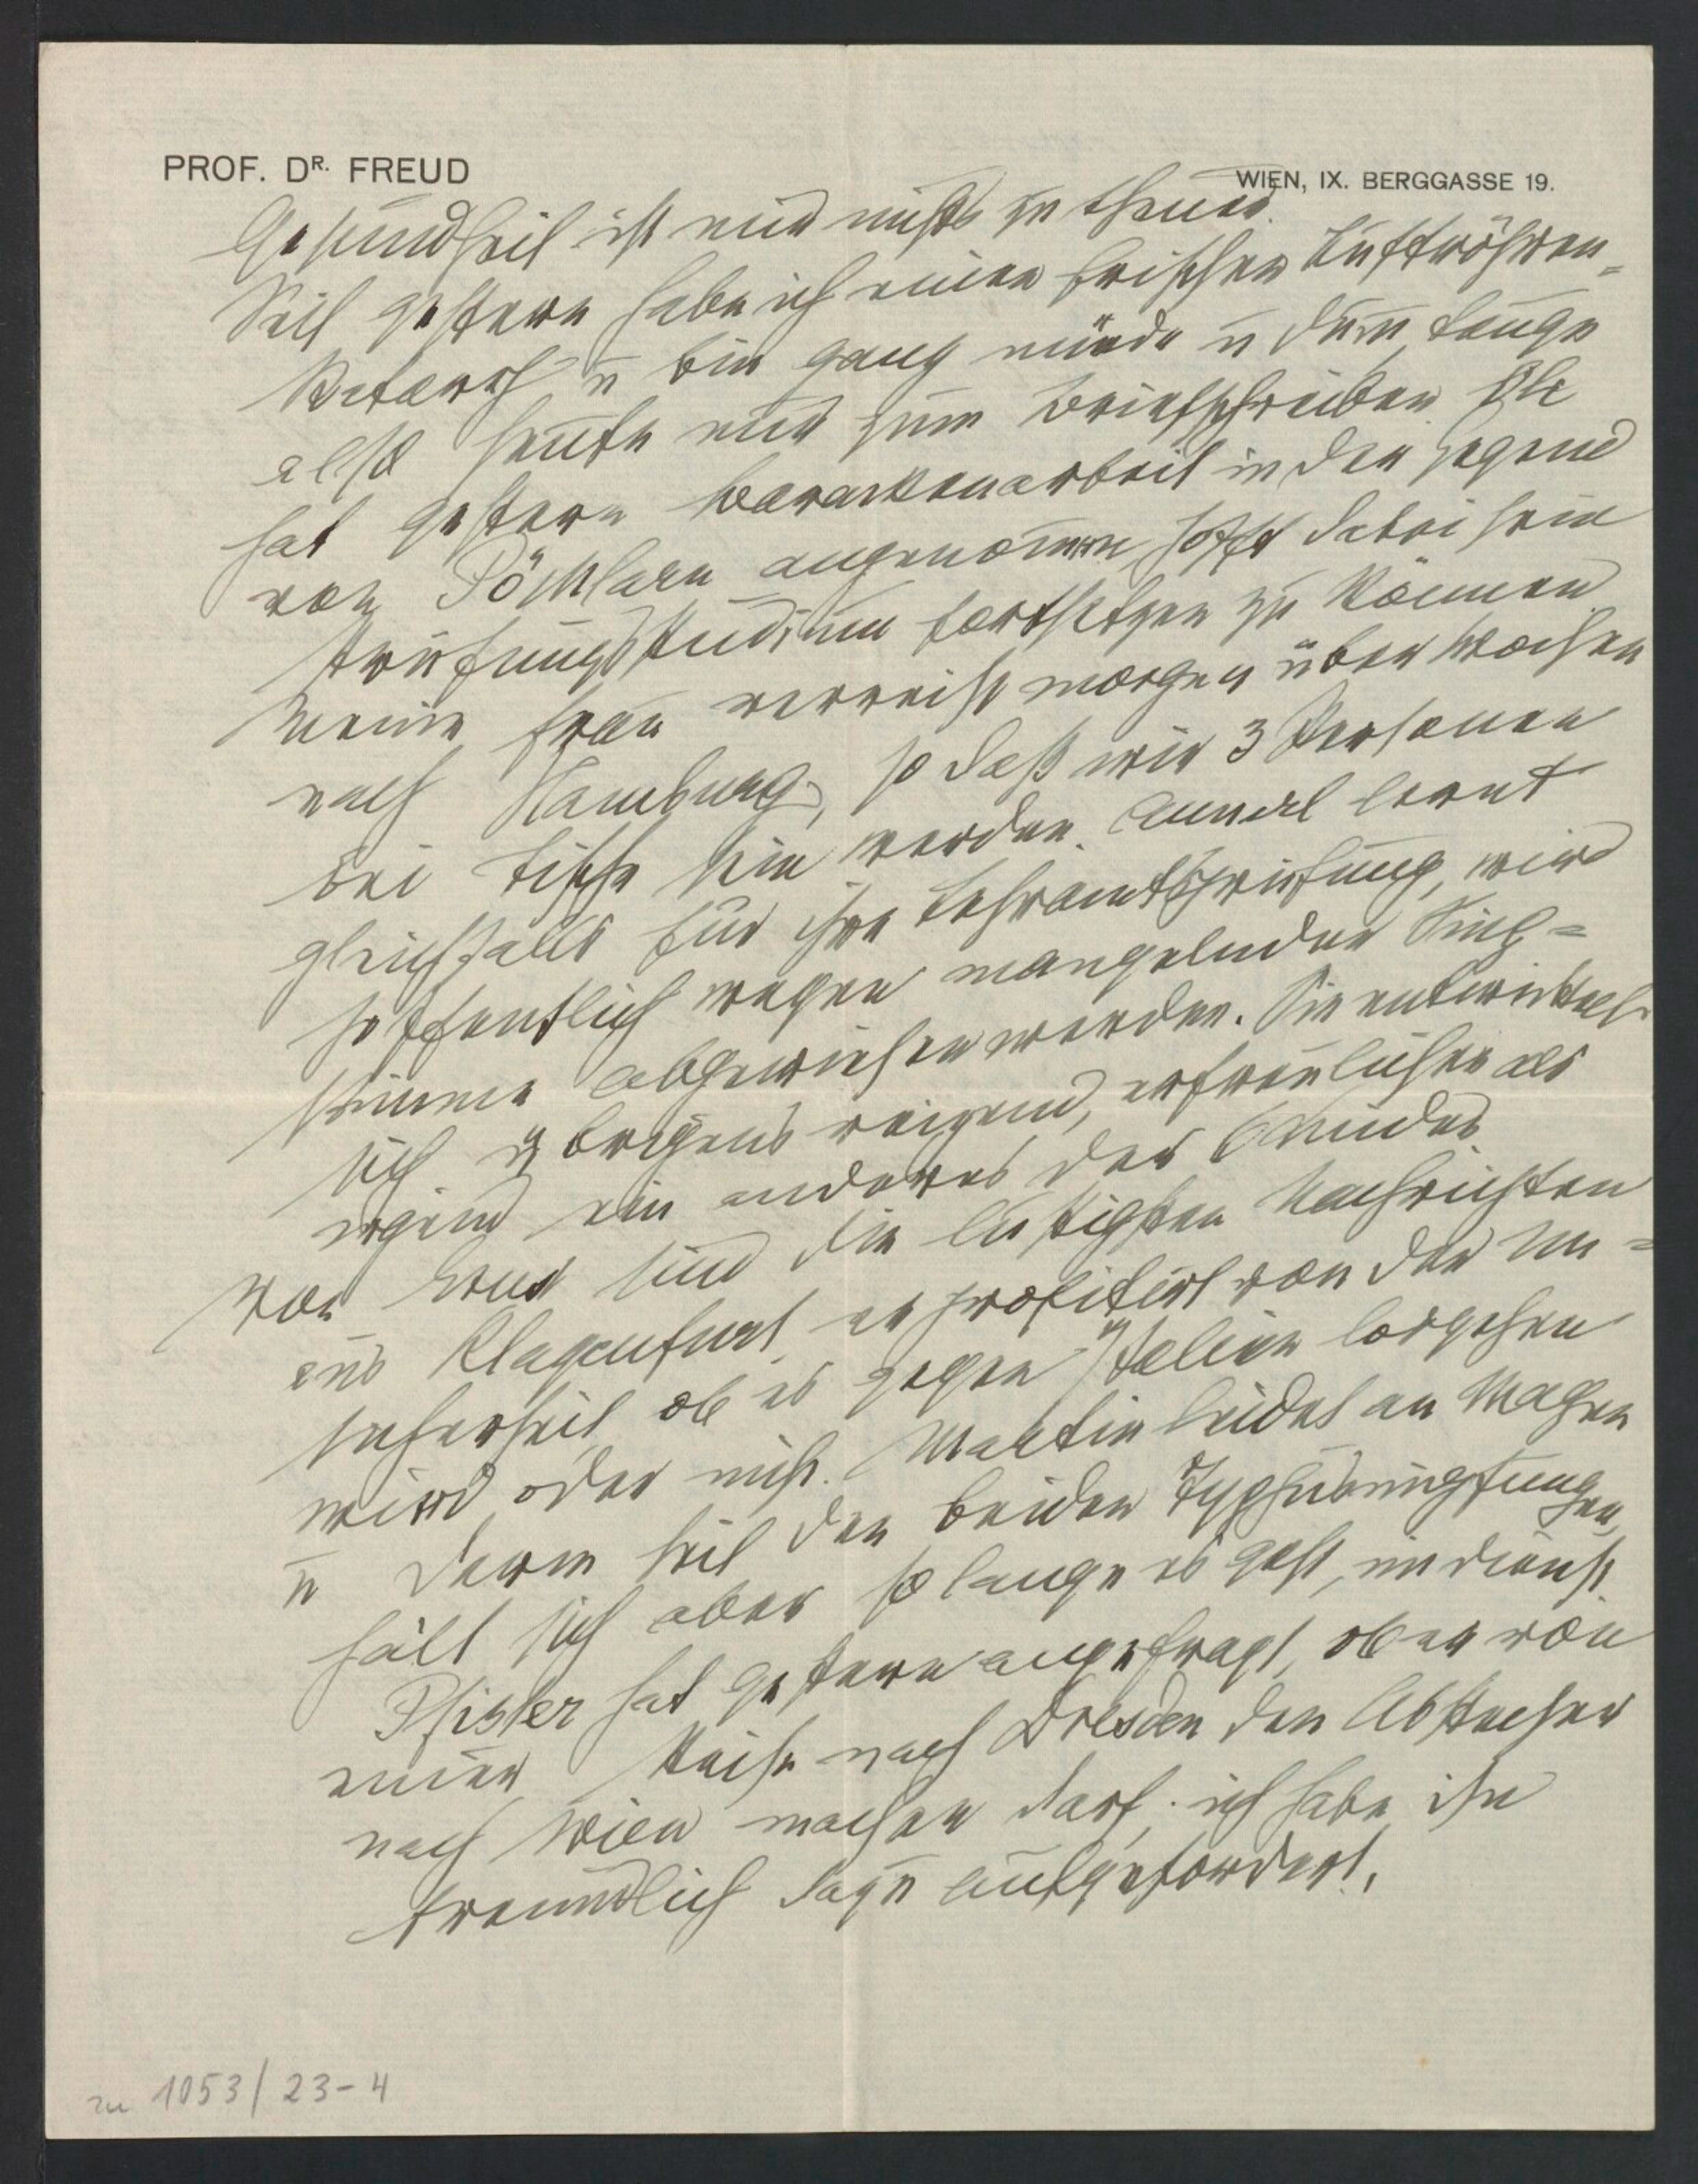 PROF. DR. FREUD
WIEN, IX. BERGGASSE 19.
Gesundheit ist mir nichts zu theuer.
Seit gestern habe ich einen frischen Luftröhren-
katarrh u bin ganz müde u dumm, tauge
also heute nur zum Briefschreiben. Oli
hat gestern Barackenarbeit in der Gegend
von Pöchlarn angenommen, hofft dabei sein
Prüfungsstudium fortsetzen zu können.
Meine Frau verreist morgen über Wochen
nach Hamburg, so daß wir 3 Personen
bei Tische sein werden. Annerl lernt
gleichfalls für ihre Lehramtsprüfung, wird
hoffentlich wegen mangelnder Sing-
stimme abgewiesen werden. Sie entwickelt
sich übrigens reizend, erfreulicher als
irgend ein anderes der 6 Kinder.
Von Ernst sind die lustigsten Nachrichten
aus Klagenfurt, er profitirt von der Un-
sicherheit, ob es gegen Italien losgehen
wird oder nicht. Martin leidet an Magen
u Darm seit den beiden Typhusimpfungen,
hält sich aber so lange es geht, im Dienst.
Pfister hat gestern angefragt, ob er von
einer Reise nach Dresden den Abstecher
nach Wien machen darf; ich habe ihn
freundlich dazu aufgefordert.
zu 1053/23-4